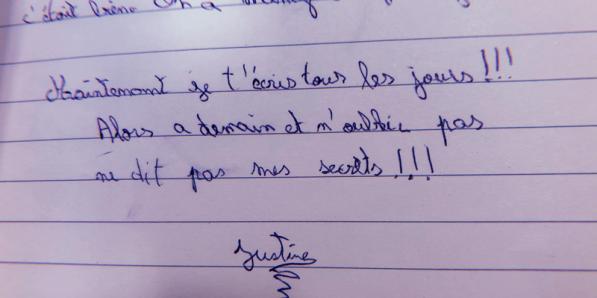 c'était
Maintenant je t'écris tous les jours!!!
Alors a demain et n'oublie pas
ne dit pas mes secrets!!!
Justine